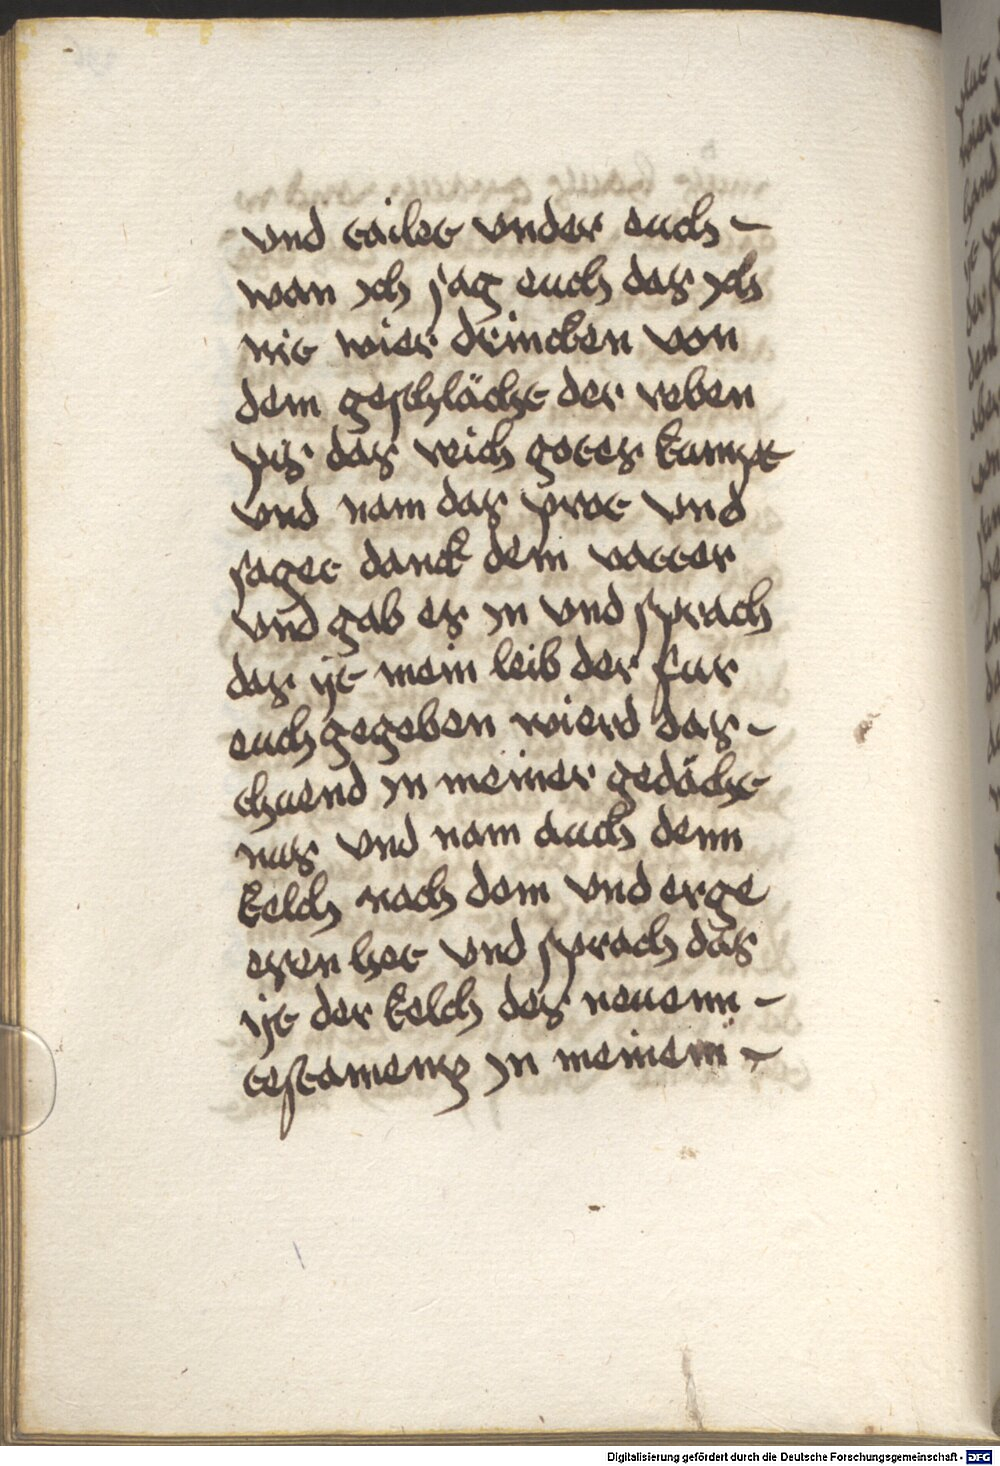 vnd tailet vnder euch -
wan jch sag euch das jch
nit wier drincken von
dem geschlächt der reben
pis das reich gotes kumpt
vnd nam das prot vnd
saget danck dem vatter
vnd gab es jn vnd sprach
das yt mein leib der fur
euch gegeben wierd das -
thuend jn meiner gedächt
nus vnd nam auch denn
kelch nach dem vnd er ge
esen het vnd sprach das
yt der kelch des neuenn -
testamentz jn meinem -
Digitalisierung gefördert durch die Deutsche Forschungsgemeinschaft - DFG